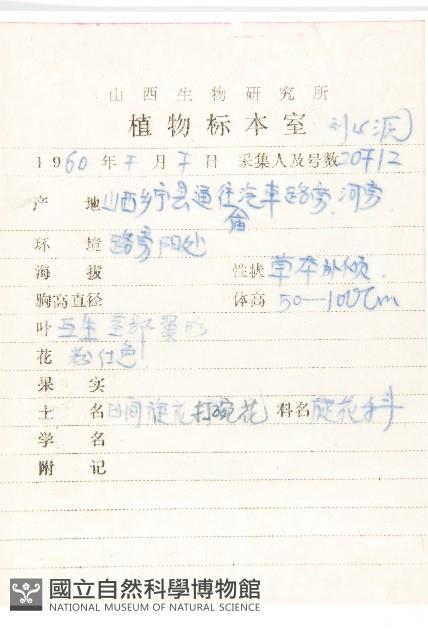 山西生物研究所
植物标本室 刘心源
1960年 月 日 采集人及号数 20712
产地 山西乡宁县通往汽车路旁、河旁
环境 路旁阳处
海拔 性状 草本
胸高直径 体高 50—100cm
叶 互生
花 粉红色
果实
土名 田间旋花 打碗花 科名 旋花科
学名
附记
國立自然科學博物館
NATIONAL MUSEUM OF NATURAL SCIENCE